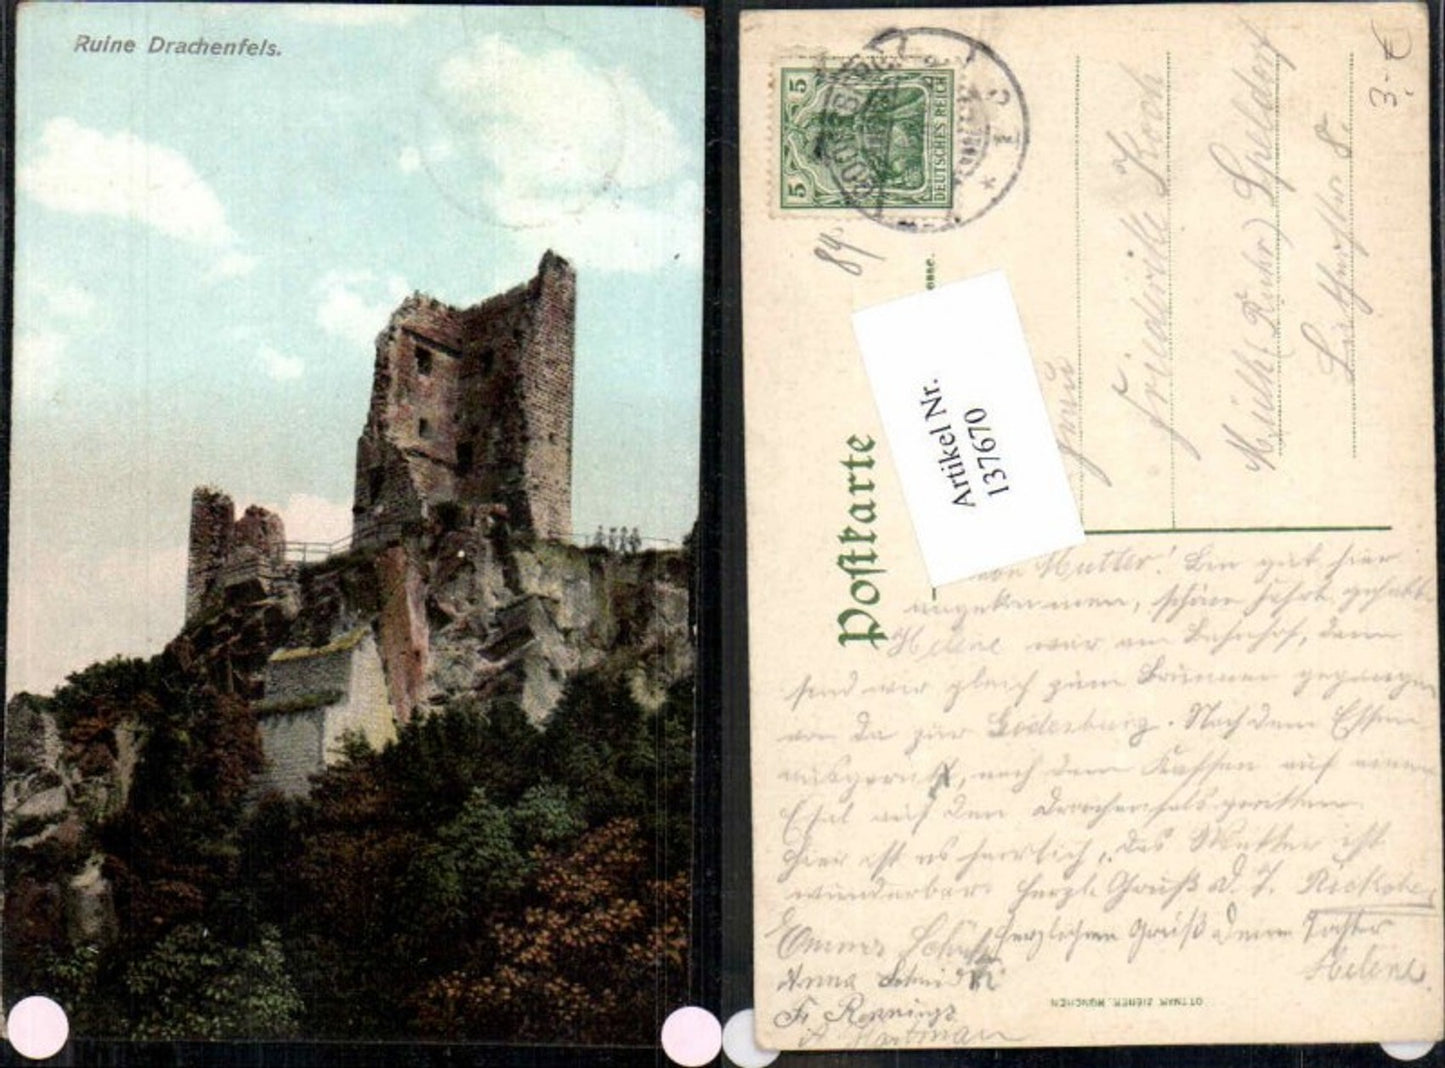 Ruine Drachenfels.
5 5
DEUTSCHES REICH
84
3.-€
Postkarte
Artikel Nr.
137670
Frau
Friederike Koch
Mülh (Ruhr) Speldorf
8.
Mutter! Bin gut hier
angekommen, schöne Fahrt gehabt.
Helene war am Bahnhof, dann
sind wir gleich zum Brunnen gegangen
von da zur Godesburg. Nach dem Essen
ausgeruht, nach dem Kaffee auf einem
Esel auf den Drachenfels geritten.
Hier ist es herrlich, das Wetter ist
wunderbar. Herzl. Gruß d. T.
herzlichen Gruß Deine Tochter
Helene
Anna Schmidt
Fr Rennings
A Hartman
OTTMAR ZIEHER, MÜNCHEN